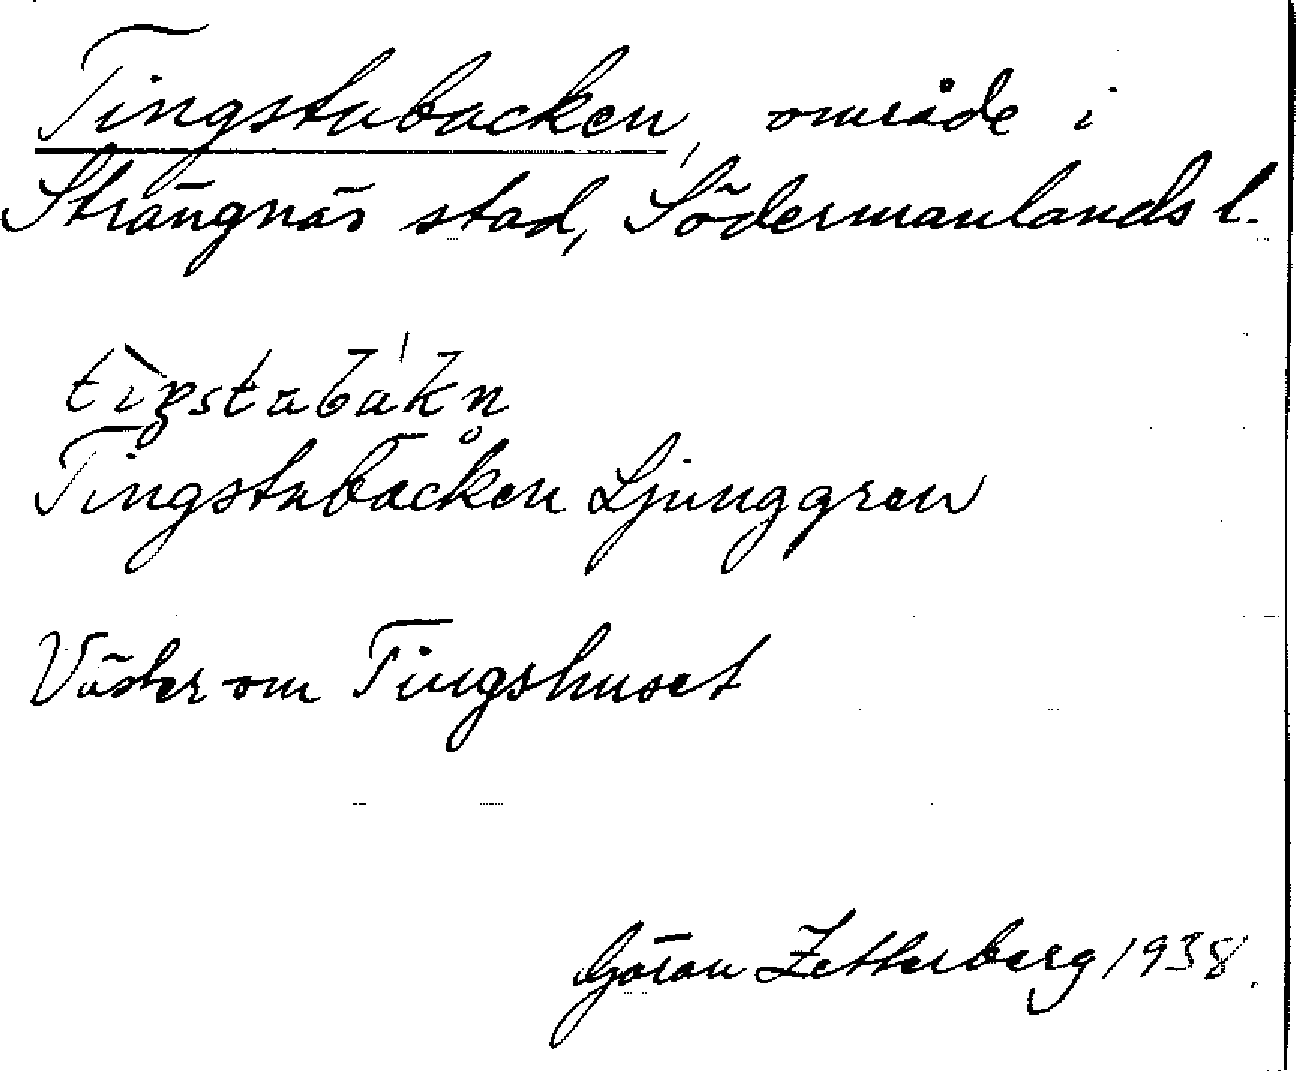 Tingstubacken, område i
Strängnäs stad, Södermanlands l.
Tingstubacken Ljunggren
Väster om Tingshuset
Göran Zetterberg 1938.